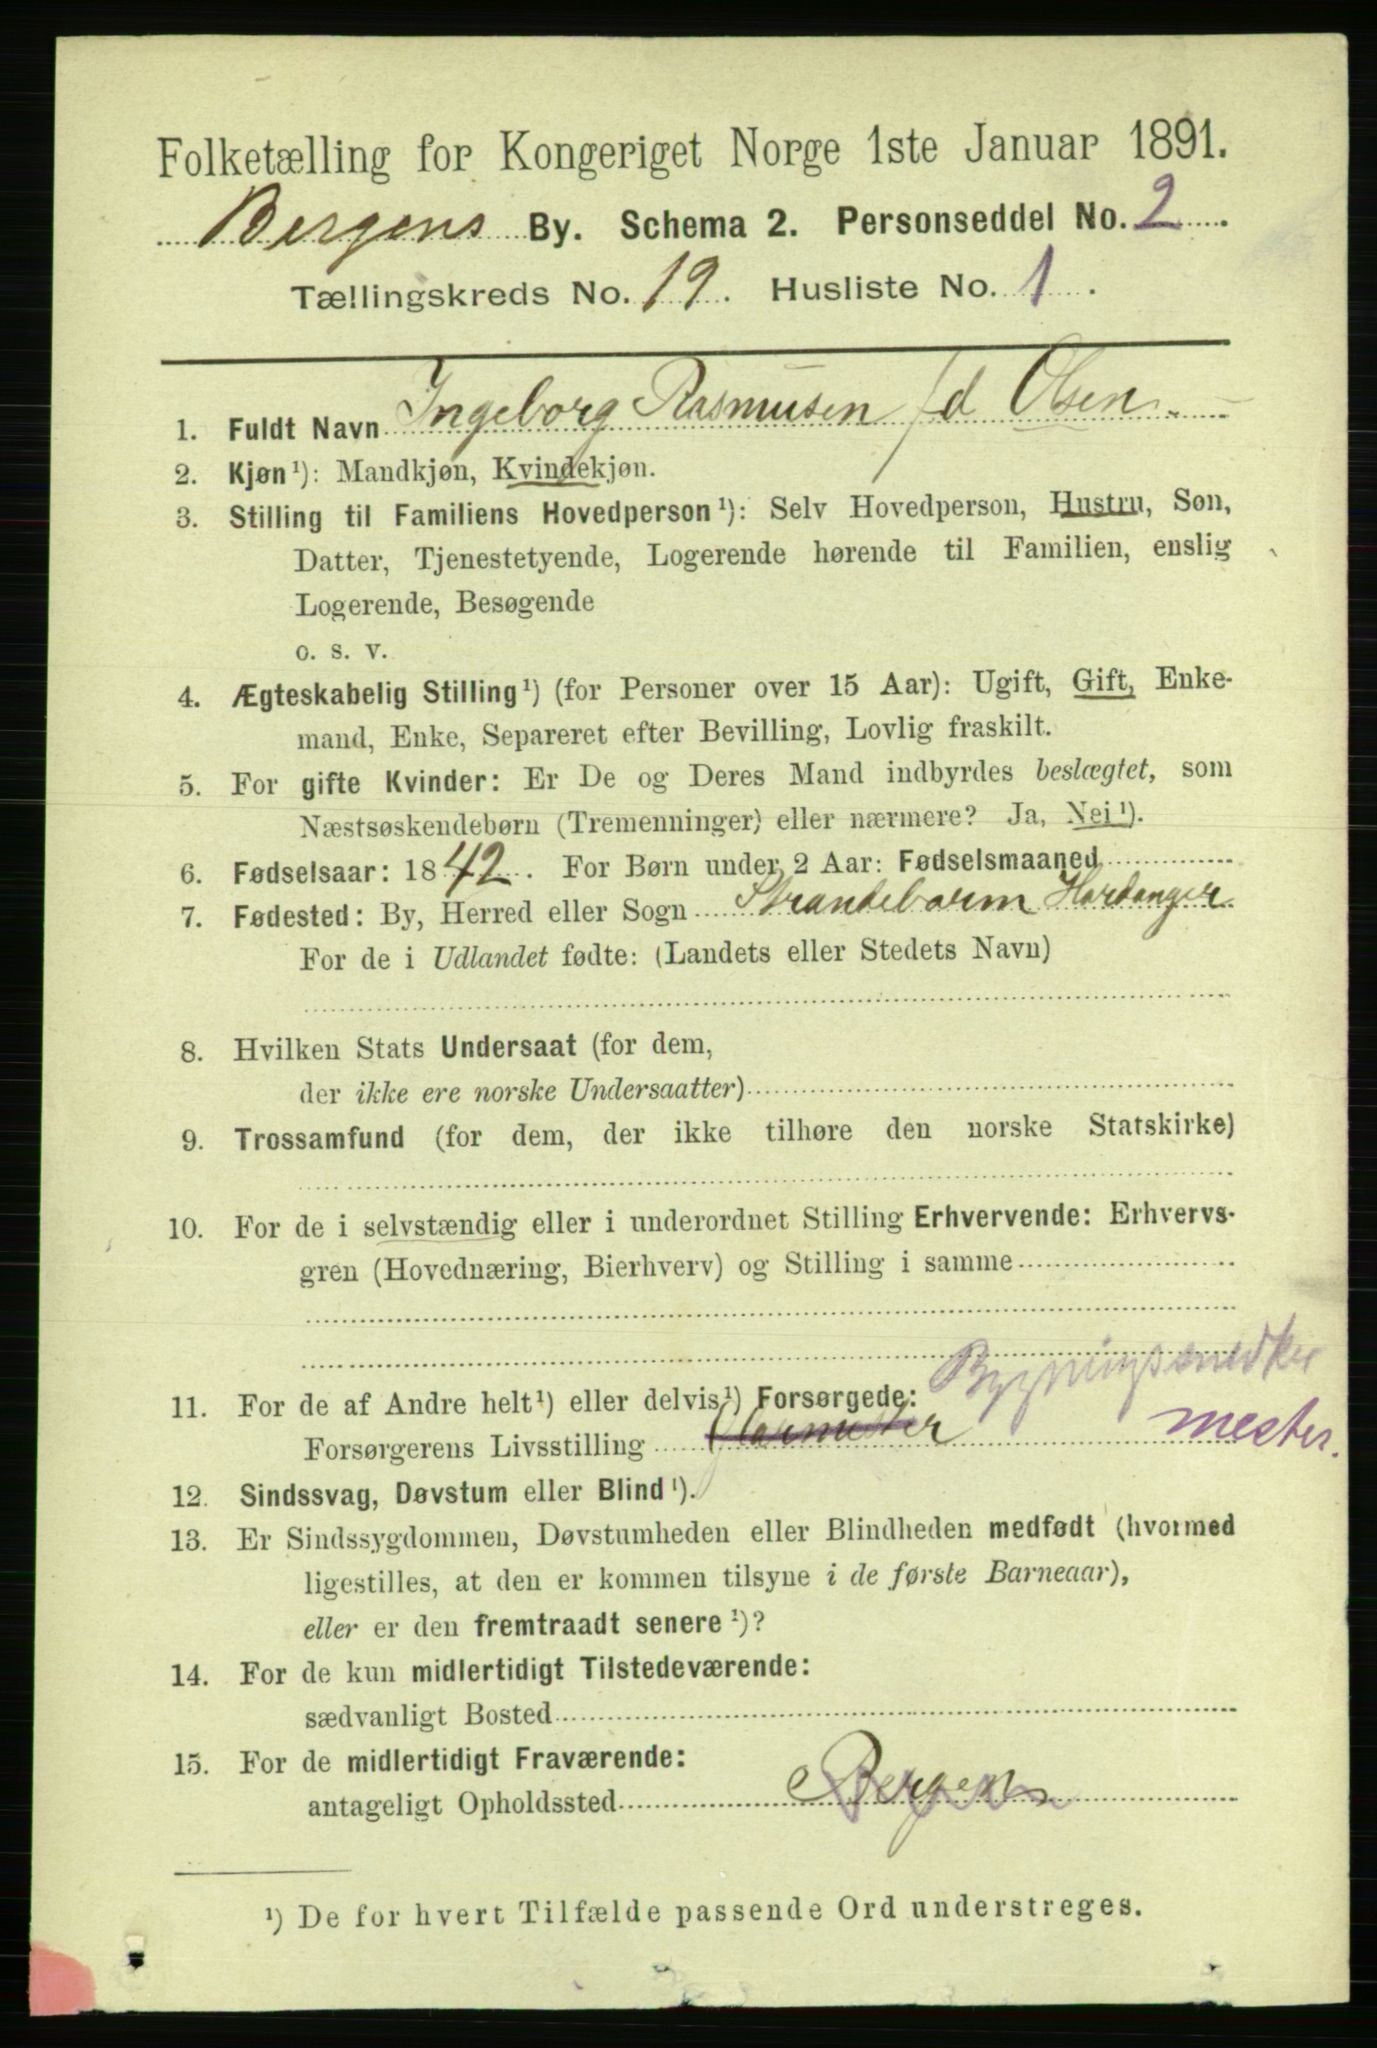 Folketælling for Kongeriget Norge 1ste Januar 1891.
Bergens By. Schema 2. Personseddel No. 2.
Tællingskreds No. 19. Husliste No. 1.
1. Fuldt Navn Ingeborg Rasmusen fd Olsen.
2. Kjøn¹): Mandkjøn, Kvindekjøn.
3. Stilling til Familiens Hovedperson¹): Selv Hovedperson, Hustru, Søn,
Datter, Tjenestetyende, Logerende hørende til Familien, enslig
Logerende, Besøgende
o. s. v.
4. Ægteskabelig Stilling¹) (for Personer over 15 Aar): Ugift, Gift, Enke-
mand, Enke, Separeret efter Bevilling, Lovlig fraskilt.
5. For gifte Kvinder: Er De og Deres Mand indbyrdes beslægtet, som
Næstsøskendebørn (Tremenninger) eller nærmere? Ja, Nei¹).
6. Fødselsaar: 1842. For Børn under 2 Aar: Fødselsmaaned
7. Fødested: By, Herred eller Sogn Strandebarm Hardanger
For de i Udlandet fødte: (Landets eller Stedets Navn)
8. Hvilken Stats Undersaat (for dem,
der ikke ere norske Undersaatter)
9. Trossamfund (for dem, der ikke tilhøre den norske Statskirke)
10. For de i selvstændig eller i underordnet Stilling Erhvervende: Erhvervs-
gren (Hovednæring, Bierhverv) og Stilling i samme
Bygningssnedker
11. For de af Andre helt¹) eller delvis¹) Forsørgede:
Forsørgerens Livsstilling mester.
12. Sindssvag, Døvstum eller Blind¹).
13. Er Sindssygdommen, Døvstumheden eller Blindheden medfødt (hvormed
ligestilles, at den er kommen tilsyne i de første Barneaar),
eller er den fremtraadt senere¹)?
14. For de kun midlertidigt Tilstedeværende:
sædvanligt Bosted
15. For de midlertidigt Fraværende:
antageligt Opholdssted Bergen
¹) De for hvert Tilfælde passende Ord understreges.